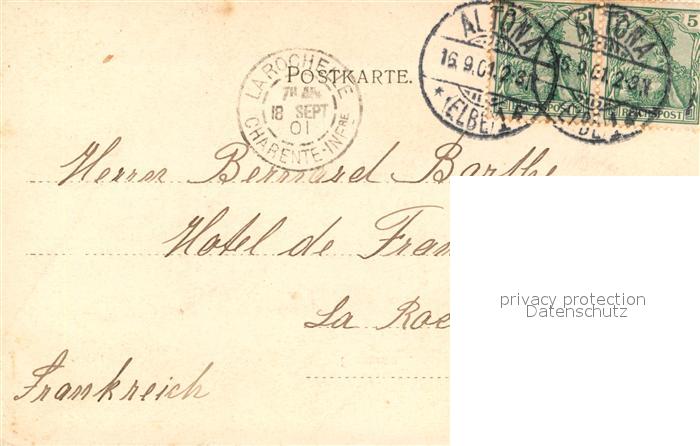 POSTKARTE.
LA ROCHELLE
18 SEPT
01
CHARENTE-INFRE
ALTONA
16.9.01.2-3N
* (ELBE) 1 *
ALTONA
16.9.01.2-3N
5
REICHSPOST
5
REICHSPOST
Herrn Bernhard Barthe
Hotel de Fran
La Roc
Frankreich
privacy protection
Datenschutz